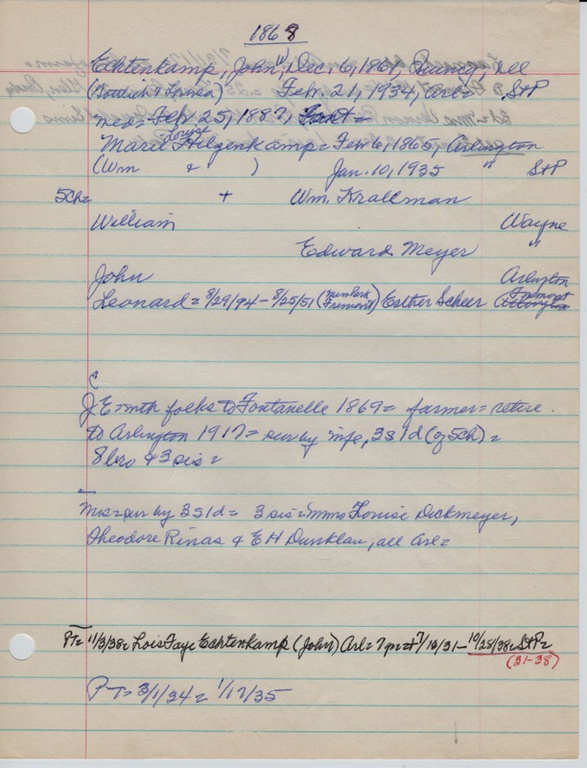 1868
Echtenkamp, John, Dec. 6, 1861, Quincy, Ill
Feb. 21, 1934, Arl= St P
med= Feb 25, 1887, Font=
Louise
Marie Hilgenkamp= Feb 6, 1865, Arlington
(Wm + ) Jan. 10, 1935 " St P
5 ch= + Wm. Krallman
William Wayne
Edward Meyer "
John Arlington
Leonard = 8/29/94 - 8/25/51 (Mem Park Fremont) Esther Scheer Fremont Arlington
J E = with folks to Fontanelle 1869 = farmer = retire.
to Arlington 1917 = sur by wife, 3 s 1 d (of 5 ch) =
8 bro & 3 sis =
Mrs = sur by 3 s 1 d = 3 sis = Mmes Louise Dickmeyer,
Theodore Rinas & E H Dunklau, all Arl=
PT= 11/3/38= Lois Faye Echtenkamp (John) Arl= 10/28/38= St P=
(31-38)
PT= 3/1/34 = 1/17/35